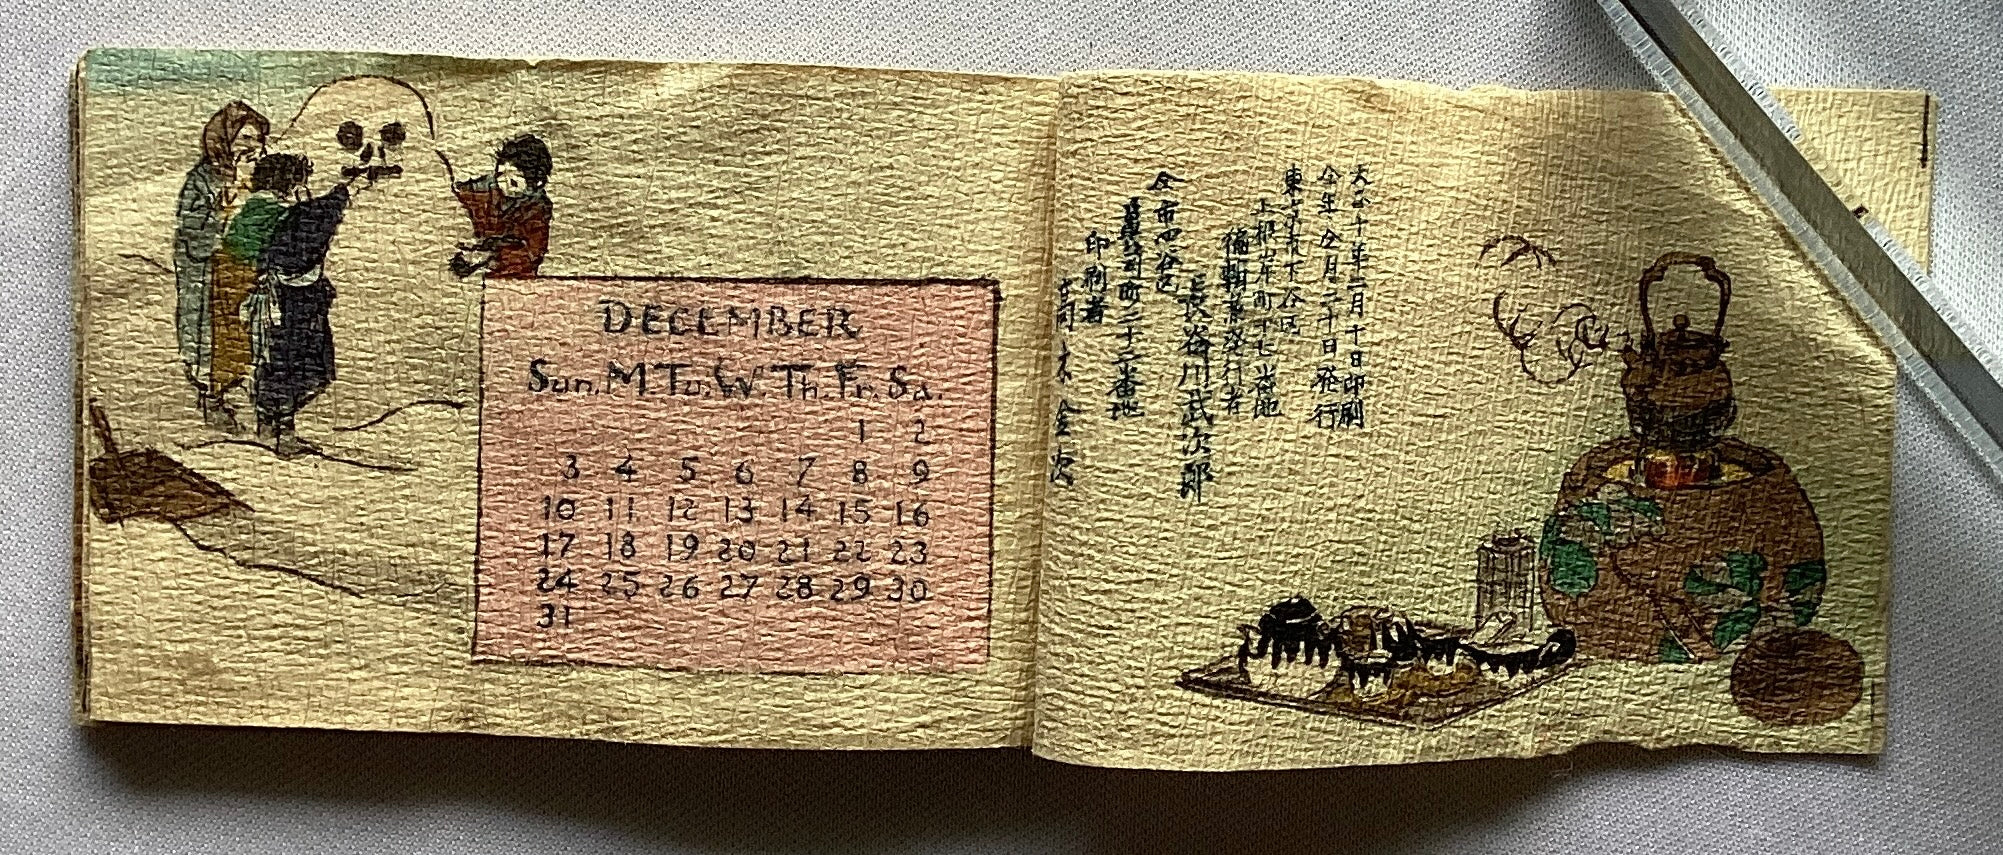 DECEMBER
Sun. M. Tu. W. Th. Fr. Sa.
1 2
3 4 5 6 7 8 9
10 11 12 13 14 15 16
17 18 19 20 21 22 23
24 25 26 27 28 29 30
31
大正十年二月十日印刷
仝年仝月二十日発行
東京市下谷区
上根岸町十七番地
編輯兼発行者
長谷川武次郎
仝市四谷区
町二十二番地
印刷者
高木金次